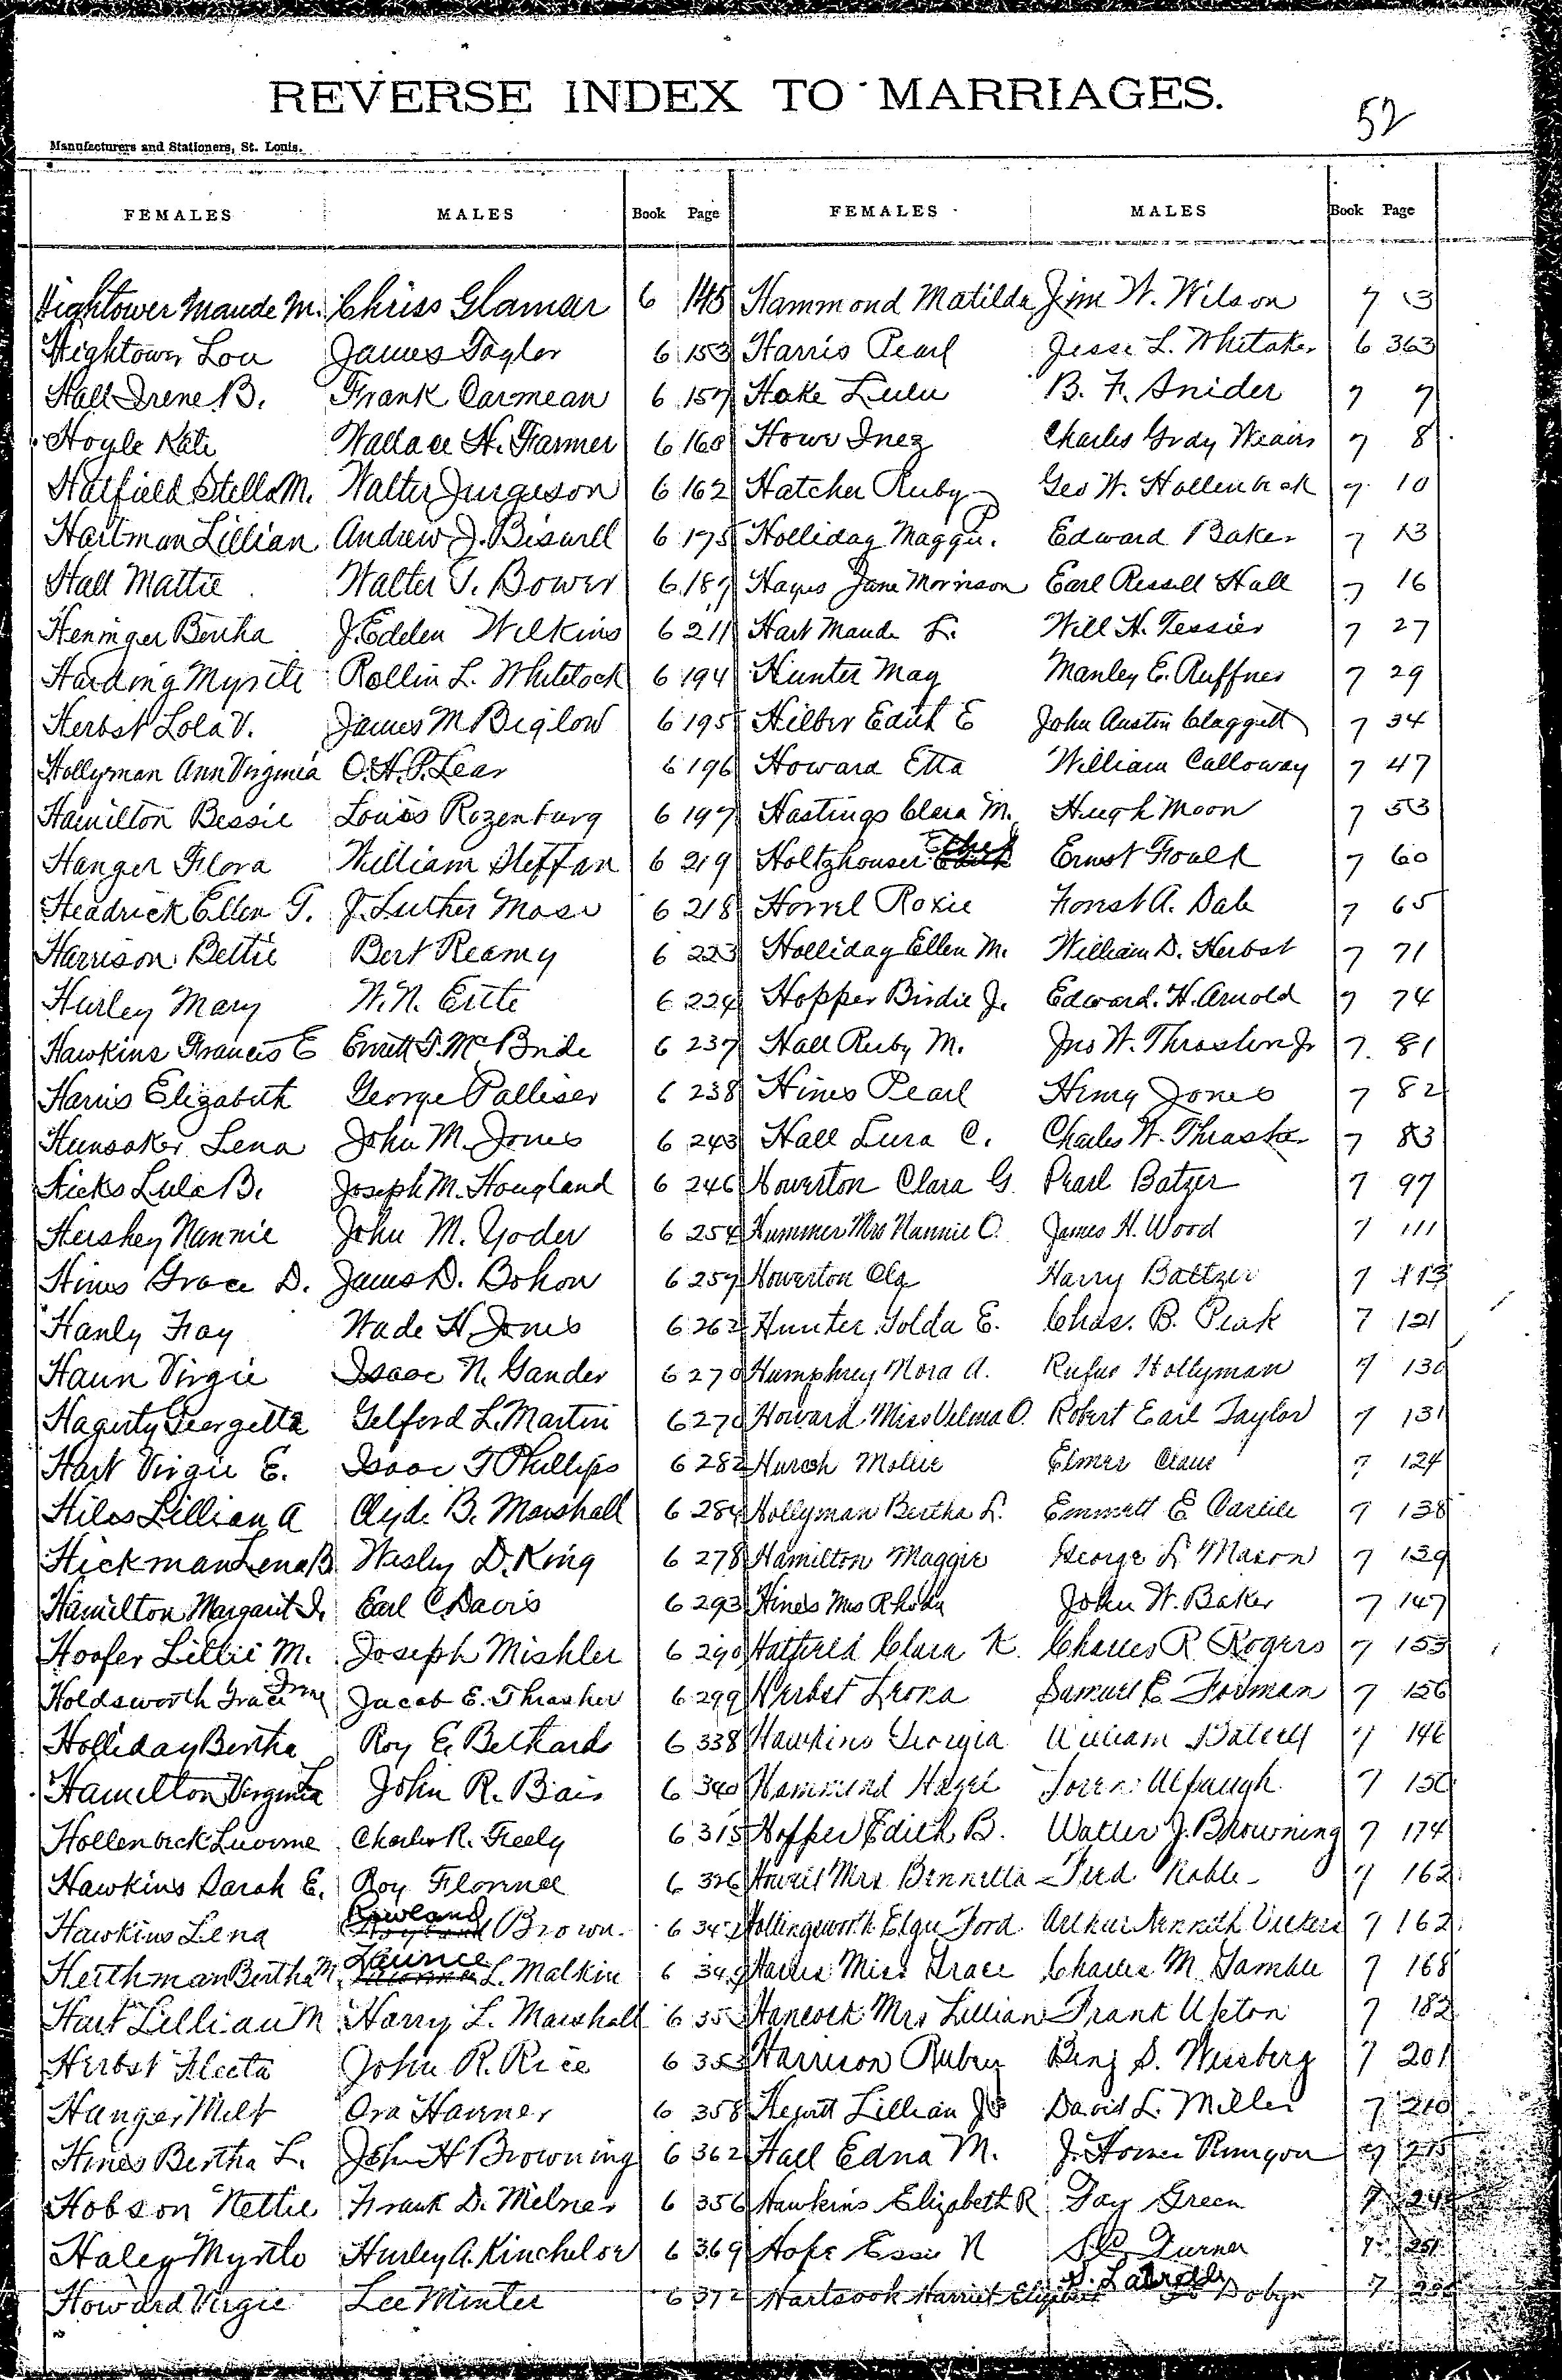 REVERSE INDEX TO MARRIAGES.
52
Manufacturers and Stationers, St. Louis.
FEMALES MALES Book Page FEMALES MALES Book Page
Hightower Maude M. Chriss Glamar 6 145 Hammond Matilda Jim W. Wilson 7 3
Hightower Lou James Taylor 6 153 Harris Pearl Jesse L. Whitaker 6 363
Hall Irene B. Frank Carmean 6 157 Hake Lulu B. F. Snider 7 7
Hoyle Kate Wallace H. Farmer 6 160 Howe Inez Charles Grady Weairs 7 8
Hatfield Stella M. Walter Jurgeson 6 162 Hatcher Ruby Geo W. Hollenbeck 7 10
Hartman Lillian Andrew J. Biswell 6 175 Holliday Maggie. Edward Baker 7 13
Hall Mattie Walter T. Bower 6 187 Hayes Jane Morrison Earl Russell Hall 7 16
Heninger Bertha J. Edelen Wilkins 6 211 Hart Maude L. Will H. Tessier 7 27
Harding Myrtle Rollin L. Whitelock 6 194 Hunter May Manley E. Ruffner 7 29
Herbst Lola V. James M Biglow 6 195 Hilber Edith E John Austin Claggett 7 34
Hollyman Ann Virginia O. H. P. Lear 6 196 Howard Etta William Calloway 7 47
Hamilton Bessie Louis Rozenburg 6 197 Hastings Clara M. Hugh Moon 7 53
Hanger Flora William Steffan 6 219 Holtzhouser Ethel Ernst Foulk 7 60
Headrick Ellen T. J. Luther Mase 6 218 Horrel Roxie Forest A. Dale 7 65
Harrison Bettie Bert Reamy 6 223 Holliday Ellen M. William D. Herbst 7 71
Hurley Mary W. N. Ertte 6 224 Hopper Birdie J. Edward H. Arnold 7 74
Hawkins Francis E Everett T. McBride 6 237 Hall Ruby M. Jno W. Thrasher Jr 7 81
Harris Elizabeth George Palliser 6 238 Hines Pearl Henry Jones 7 82
Hunsaker Lena John M. Jones 6 243 Hall Lura C. Charles W. Thrasher 7 83
Hicks Lula B. Joseph M. Hougland 6 246 Howerton Clara G. Pearl Batzer 7 97
Hershey Nannie John M. Yoder 6 254 Hummer Mrs Nannie O. James H. Wood 7 111
Hines Grace D. James D. Bohon 6 257 Howerton Ola Harry Baltzer 7 113
Hanly Fay Wade H Jones 6 262 Hunter Golda E. Chas. B. Peak 7 121
Haun Virgie Isaac N. Gander 6 270 Humphrey Nora A. Rufus Hollyman 7 130
Hagerty Georgetta Telford L. Martin 6 270 Howard Miss Velma O. Robert Earl Taylor 7 131
Hart Virgie E. Isaac T Phillips 6 282 Hursh Mollie Elmer Crane 7 124
Hiles Lillian A Clyde B. Marshall 6 284 Hollyman Bertha L. Emmett E Carlile 7 138
Hickman Lena B Wesley D. King 6 278 Hamilton Maggie George L Mason 7 139
Hamilton Margaret I. Earl C Davis 6 293 Hines Mrs Rhoda John W. Baker 7 147
Hoofer Lillie M. Joseph Mishler 6 290 Hatfield Clara K. Charles R Rogers 7 153
Holdsworth Grace Irene Jacob E. Thrasher 6 299 Herbst Leona Samuel E Fodman 7 156
Holliday Bertha Roy E. Bethards 6 338 Hawkins Georgia William 7 146
Hamilton Virginia L John R. Bais 6 340 Hammond Hazel Loren Alpaugh 7 150
Hollenbeck Luverne Charles R. Feely 6 315 Hopper Edith B. Walter J. Browning 7 174
Hawkins Sarah E. Roy Florence 6 326 Howell Mrs Bennetta Fred Noble 7 162
Hawkins Lena Rowland Brown. 6 Hollingsworth Elgie Ford Arthur Kenneth Vickers 7 162
Heithman Bertha M Launce L. Malkin 6 349 Harris Miss Grace Charles M. Gamble 7 168
Hart Lillian M Harry L. Marshall 6 Hancock Mrs Lillian Frank Upton 7 182
Herbst Fleeta John R. Rice 6 353 Harrison Rubey Benj S. Weisberg 7 201
Hanger Melt Ora Havner 6 358 Hewitt Lillian David L. Miller 7 210
Hines Bertha L. John H Browning 6 362 Hall Edna M. J. Homer Runyon 7 215
Hobson Nettie Frank D. Milner 6 356 Hawkins Elizabeth R Fay Green 7
Haley Myrtle Hurley A. Kincheloe 6 369 Hope Essie N Turner 7 251
Howard Virgie Lee Minter 6 372 Hartsook Harriet Elizabeth S. Dobyn 7